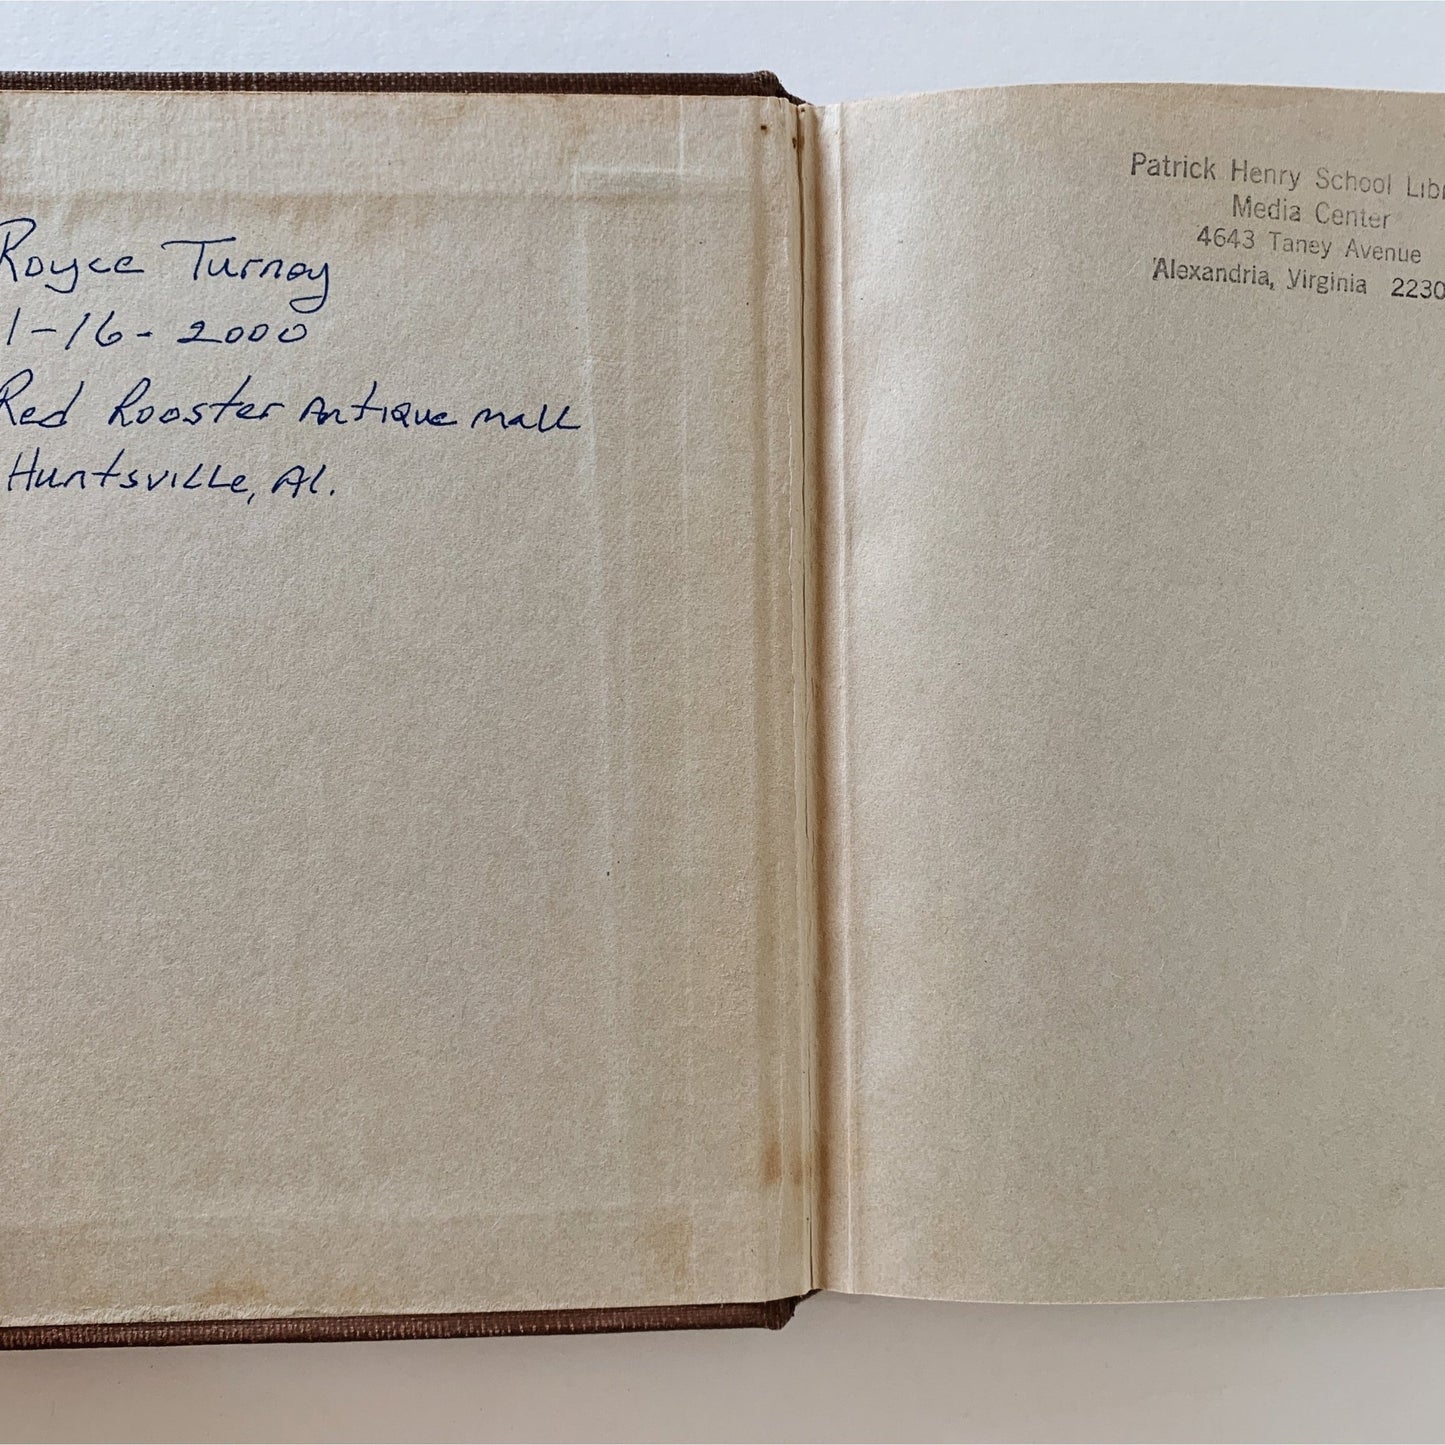 Royce Turney
1-16-2000
Red Rooster Antique Mall
Huntsville, Al.
Patrick Henry School Libr
Media Center
4643 Taney Avenue
Alexandria, Virginia 2230